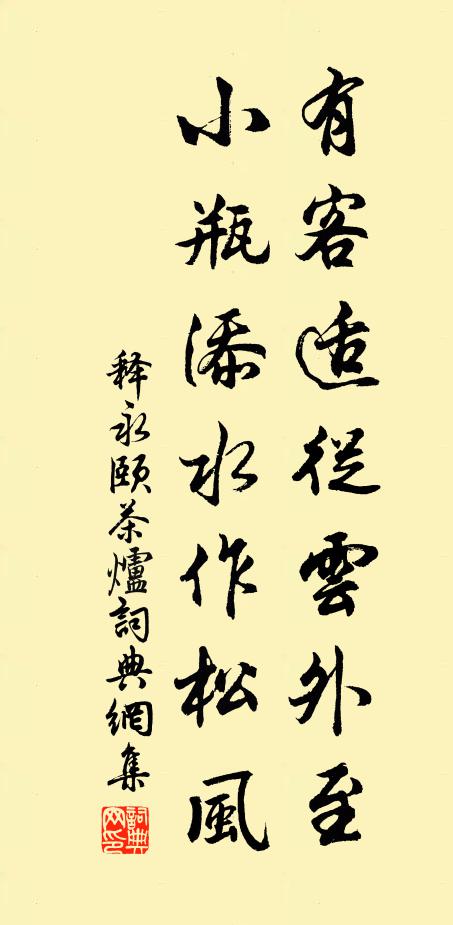 有客适從雲外至
小瓶添水作松風
释永頤茶爐詞典網集
詞典網印